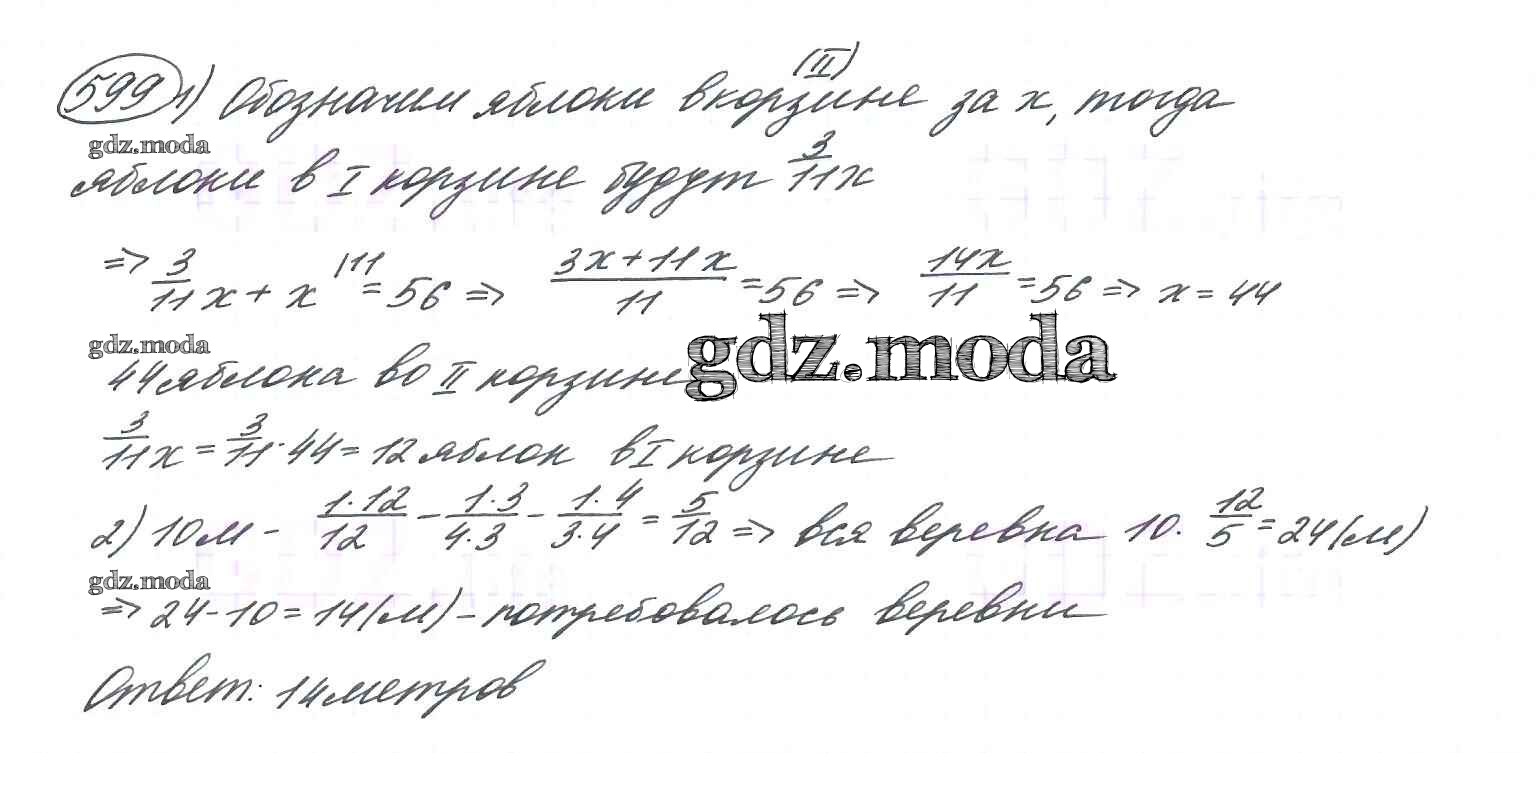 599 1) Обозначим яблоки в корзине (II) за x, тогда
gdz.moda
яблоки в I корзине будут 3/11 x
=> 3/11 x + x |11 = 56 => (3x+11x)/11 = 56 => 14x/11 = 56 => x = 44
gdz.moda
gdz.moda
44 яблока во II корзине
3/11 x = 3/11 · 44 = 12 яблок в I корзине
2) 10м - (1·12)/12 - (1·3)/(4·3) - (1·4)/(3·4) = 5/12 => вся веревка 10 · 12/5 = 24 (м)
gdz.moda
=> 24-10 = 14 (м) - потребовалось веревки
Ответ: 14 метров